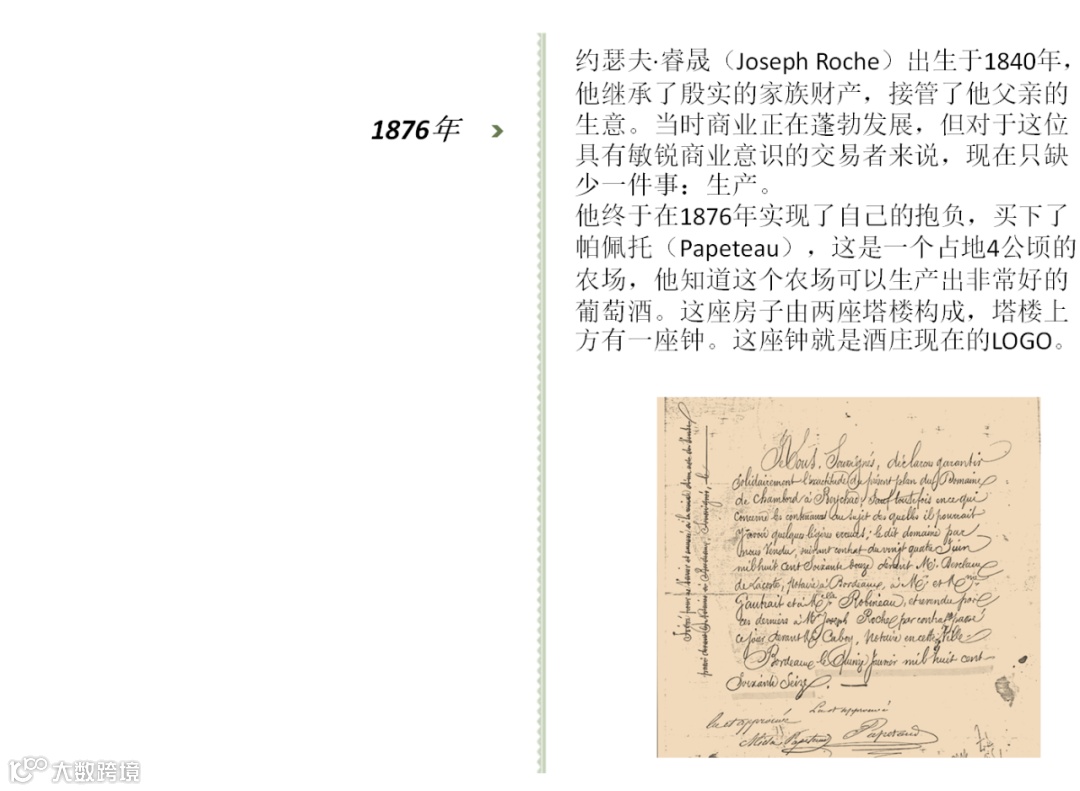 1876年
约瑟夫·睿晟（Joseph Roche）出生于1840年，
他继承了殷实的家族财产，接管了他父亲的
生意。当时商业正在蓬勃发展，但对于这位
具有敏锐商业意识的交易者来说，现在只缺
少一件事：生产。
他终于在1876年实现了自己的抱负，买下了
帕佩托（Papeteau），这是一个占地4公顷的
农场，他知道这个农场可以生产出非常好的
葡萄酒。这座房子由两座塔楼构成，塔楼上
方有一座钟。这座钟就是酒庄现在的LOGO。
Nous, Soussignés, déclarons garantir
solidairement l'exactitude du présent plan du Domaine
de Chambord à Reychac, sauf toutefois en ce qui
concerne les contenances au sujet des quelles il pourrait
y avoir quelques légères erreurs; le dit domaine par
nous vendu, suivant contrat du vingt quatre Juin
mil huit cent soixante douze devant Me
de Lacoste, Notaire à Bordeaux, à Mr et Mme
Gautrait et à Mlle Robineau, et revendu par
ces derniers à Mr Joseph Roche par contrat passé
ce jour devant Me Notaire en cette Ville.
Bordeaux le Quinze Janvier mil huit cent
soixante Seize.
Lu et approuvé
Lu et approuvé
大数跨境